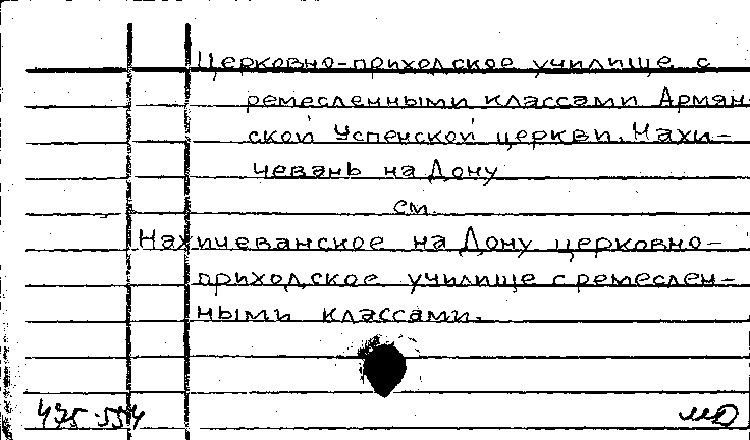 Церковно-приходское училище с
ремесленными классами Армян
ской Успенской церкви. Нахи-
чевань на Дону
см.
Нахичеванское на Дону церковно-
приходское училище с ремеслен-
ными классами.
475-554